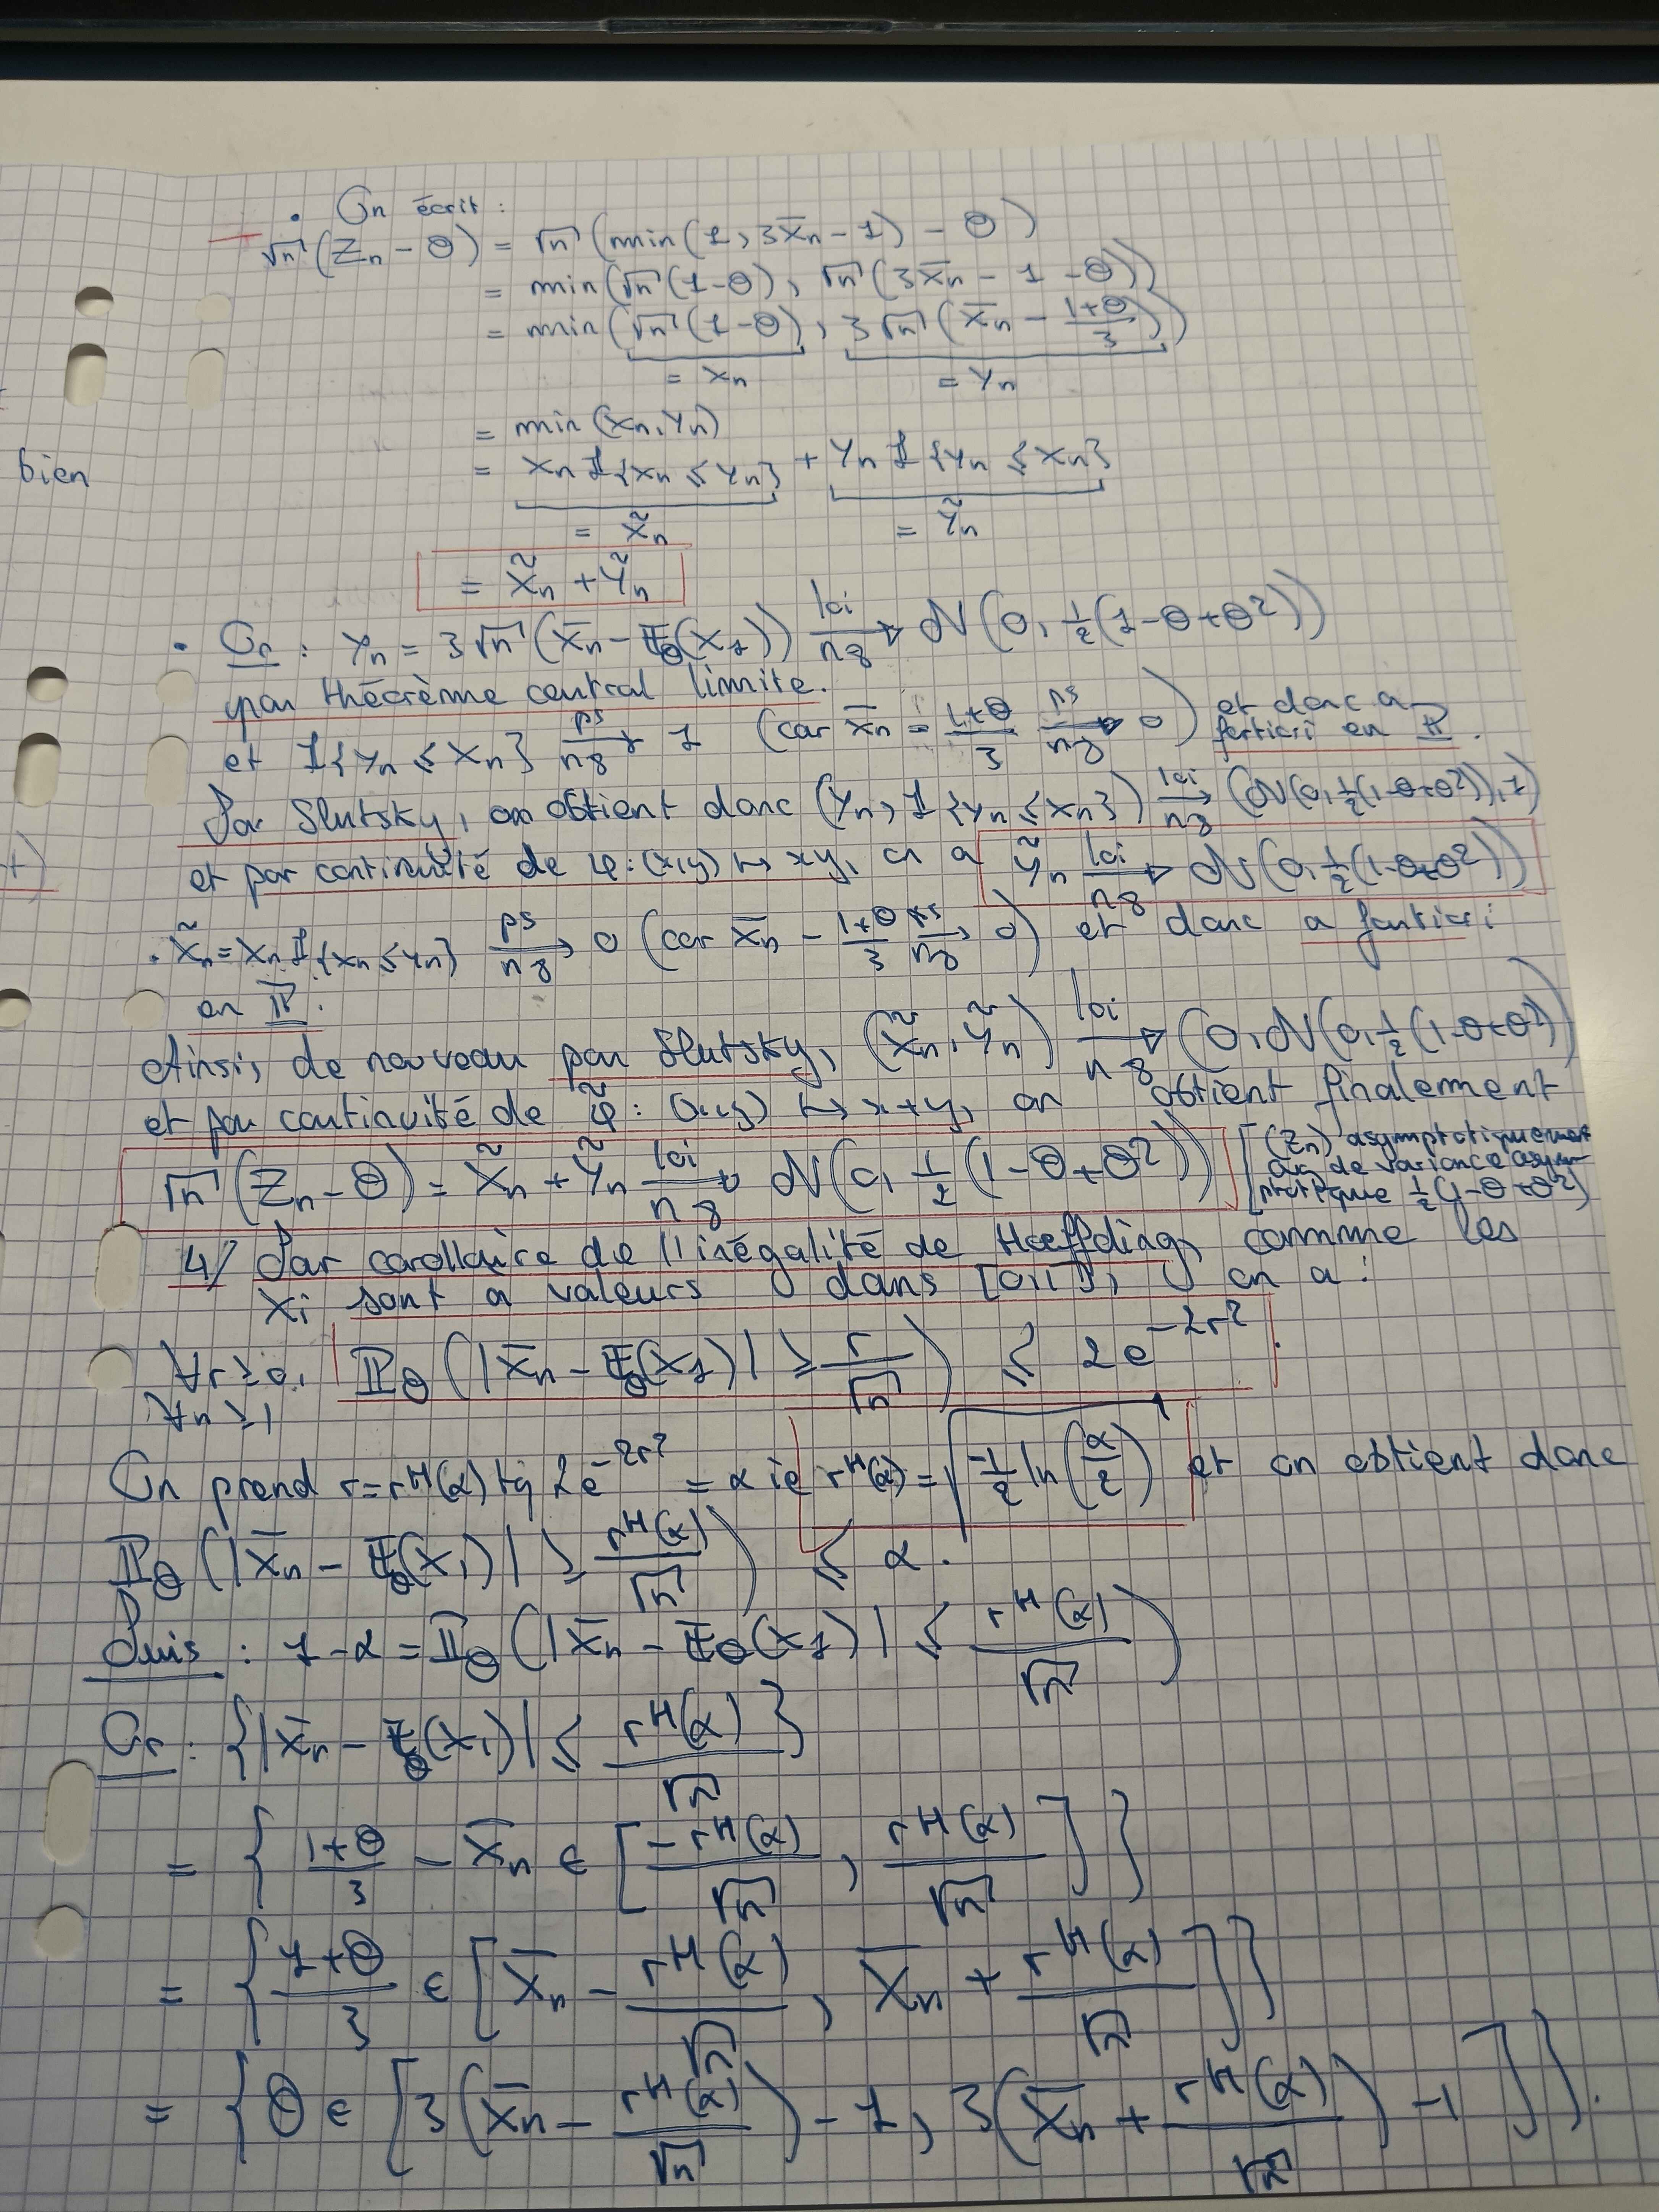 • On écrit :
√n (Zn − θ) = √n (min(1, 3X̄n − 1) − θ)
= min(√n (1−θ), √n (3X̄n − 1 − θ))
= min(√n (1−θ), 3√n (X̄n − (1+θ)/3))
= Xn = Yn
= min(Xn, Yn)
bien
= Xn 𝟙{Xn ≤ Yn} + Yn 𝟙{Yn ≤ Xn}
= X̃n = Ỹn
= X̃n + Ỹn
• Or : Yn = 3√n (X̄n − 𝔼θ(X1)) loi→ n∞ N(0, 1/2(1−θ+θ²))
par théorème central limite.
et 𝟙{Yn ≤ Xn} ps→ n∞ 1 (car X̄n − (1+θ)/3 ps→ n∞ 0) et donc a fortiori en ℙ.
Par Slutsky, on obtient donc (Yn, 𝟙{Yn ≤ Xn}) loi→ n∞ (N(0, 1/2(1−θ+θ²)), 1)
et par continuité de φ : (x,y) ↦ xy, on a Ỹn loi→ n∞ N(0, 1/2(1−θ+θ²))
• X̃n = Xn 𝟙{Xn ≤ Yn} ps→ n∞ 0 (car X̄n − (1+θ)/3 ps→ n∞ 0) et donc a fortiori
en ℙ.
Ainsi, de nouveau par Slutsky, (X̃n, Ỹn) loi→ n∞ (0, N(0, 1/2(1−θ+θ²))
et par continuité de φ̃ : (x,y) ↦ x+y, on obtient finalement
√n (Zn − θ) = X̃n + Ỹn loi→ n∞ N(0, 1/2 (1−θ+θ²)) [(Zn) asymptotiquement de variance asymptotique 1/2(1−θ+θ²)
4/ Par corollaire de l'inégalité de Hoeffding, comme les
Xi sont à valeurs dans [0,1], on a :
∀r ≥ 0, ℙθ (|X̄n − 𝔼θ(X1)| ≥ r/√n) ≤ 2e^{−2r²}.
∀n ≥ 1
On prend r = r^H(α) tq 2e^{−2r²} = α ie r^H(α) = √(−1/2 ln(α/2)) et on obtient donc
ℙθ (|X̄n − 𝔼θ(X1)| ≥ r^H(α)/√n) ≤ α.
Puis : 1−α = ℙθ (|X̄n − 𝔼θ(X1)| ≤ r^H(α)/√n)
Or : {|X̄n − 𝔼θ(X1)| ≤ r^H(α)/√n}
= {(1+θ)/3 − X̄n ∈ [−r^H(α)/√n, r^H(α)/√n]}
= {(1+θ)/3 ∈ [X̄n − r^H(α)/√n, X̄n + r^H(α)/√n]}
= {θ ∈ [3(X̄n − r^H(α)/√n) − 1, 3(X̄n + r^H(α)/√n) − 1]}.